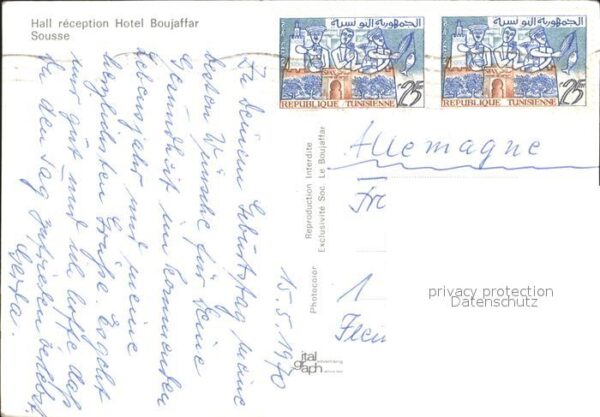 Hall réception Hotel Boujaffar
Sousse
الجمهورية التونسية
REPUBLIQUE TUNISIENNE
25
الجمهورية التونسية
REPUBLIQUE TUNISIENNE
25
15.5.1970
Zu Deinem Geburtstag meine
besten Wünsche für Deine
Gesundheit im kommenden
Lebensjahr und meine
herzlichsten Grüße. Es geht
mir gut und ich hoffe daß
Du den Tag zufrieden verlebst
Gerta.
Photocolor
Reproduction Interdite
Exclusivité Soc. Le Boujaffar
ital
graph
Allemagne
Fr
1
privacy protection
Datenschutz